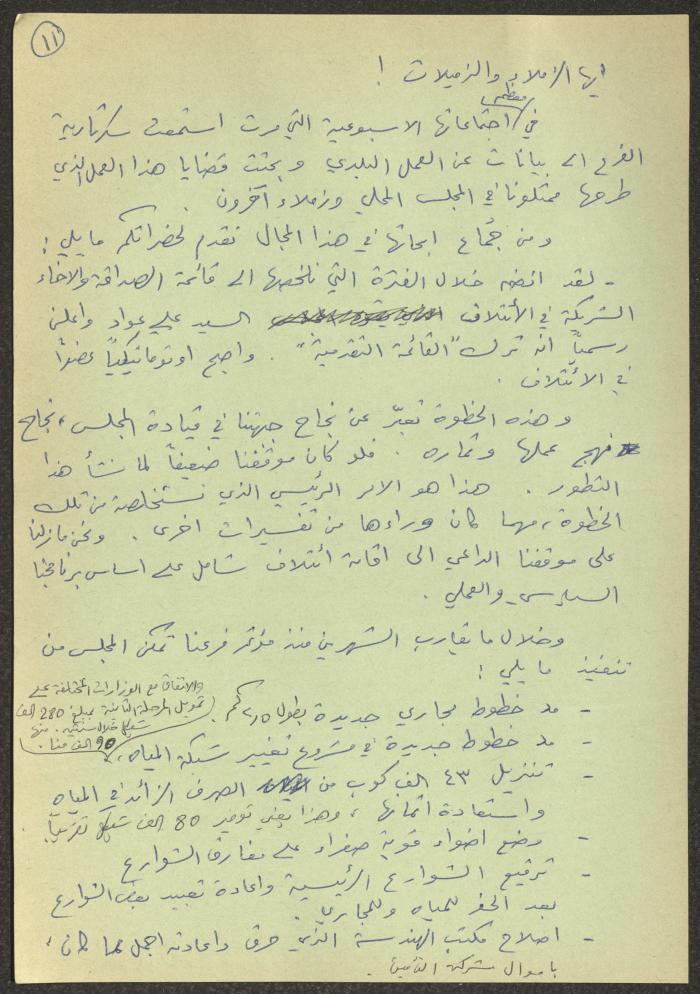 ١١
ايها الزملاء والزميلات !
في معظم اجتماعاتها الاسبوعية التي مرت استمعت سكرتارية
الفرع الى بيانات عن العمل البلدي وبحثت قضايا هذا العمل الذي
طرحها ممثلونا في المجلس المحلي وزملاء آخرون .
ومن جُمّاع ابحاثها في هذا المجال نقدم لحضراتكم ما يلي :
- لقد انضم خلال الفترة التي نلخصها الى قائمة الصداقة والاخاء
الشريكة في الأئتلاف السيد علي عواد واعلن
رسمياً انه ترك "القائمة التقدمية" . واصبح اوتوماتيكياً عضواً
في الائتلاف .
وهذه الخطوة تعبّر عن نجاح جبهتنا في قيادة المجلس ، نجاح
نهج عملها وثماره . فلو كان موقفنا ضعيفاً لما نشأ هذا
التطور . هذا هو الامر الرئيسي الذي نستخلصه من تلك
الخطوة ، مهما كان وراءها من تفسيرات اخرى . ونحن ما زلنا
على موقفنا الداعي الى اقامة ائتلاف شامل على اساس برنامجنا
السياسي والعملي .
وخلال ما يقارب الشهرين منذ مؤتمر فرعنا تمكن المجلس من
تنفيذ ما يلي :
- مد خطوط مجاري جديدة بطول ٢,٥ كم .
والاتفاق مع الوزارات المختلفة على
تمويل المرحلة الثانية بمبلغ 280 الف
شيكل خلال سنتين . منها
90 الف منا .
- مد خطوط جديدة في مشروع تغيير شبكة المياه .
- تنزيل ٤٣ الف كوب من الصرف الزائد في المياه
واستعادة اثمانها ، وهذا يعني توفير 80 الف شيكل تقريباً .
- وضع اضواء قوية صفراء على مفارق الشوارع
- ترقيع الشوارع الرئيسية واعادة تعبيد بعض الشوارع
بعد الحفر للمياه وللمجاري .
- اصلاح مكتب الهندسة الذي حرق واعادته اجمل مما كان ،
باموال شركة التأمين .